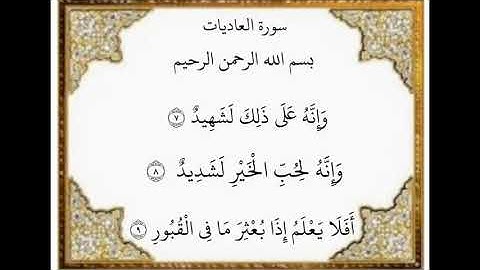 سورة العاديات
بسم الله الرحمن الرحيم
وَإِنَّهُ عَلَى ذَلِكَ لَشَهِيدٌ ٧
وَإِنَّهُ لِحُبِّ الْخَيْرِ لَشَدِيدٌ ٨
أَفَلَا يَعْلَمُ إِذَا بُعْثِرَ مَا فِى الْقُبُورِ ٩